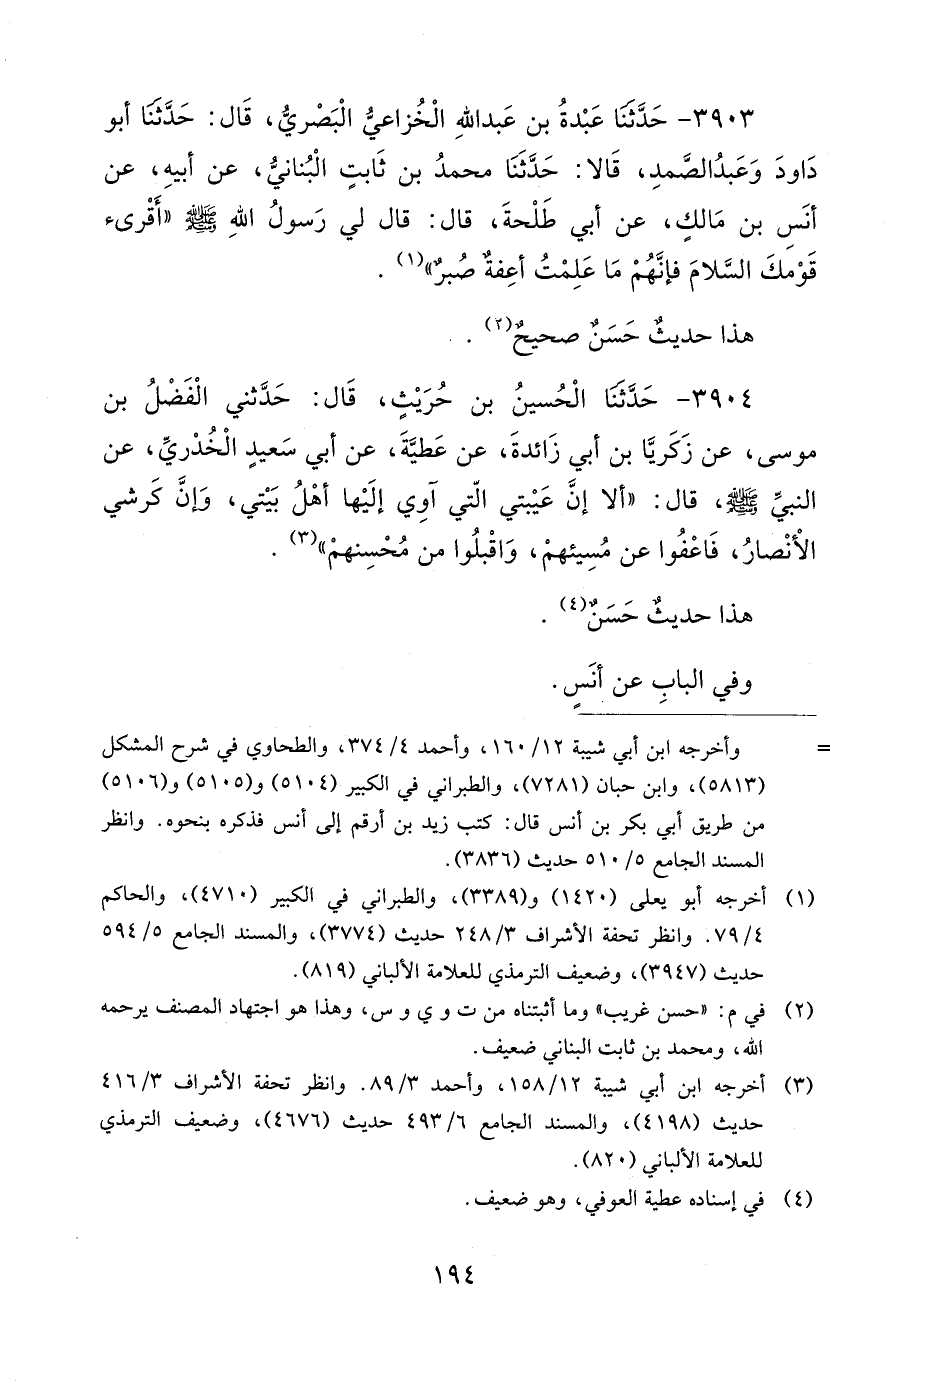 ٣٩٠٣- حَدَّثَنَا عَبْدةُ بن عَبداللهِ الْخُزاعيُّ الْبَصْريُّ، قَال: حَدَّثَنَا أبو
دَاودَ وَعَبدُالصَّمدِ، قَالا: حَدَّثَنَا محمدُ بن ثَابتٍ الْبُنانيُّ، عن أبيهِ، عن
أنَسِ بن مَالكٍ، عن أبي طَلْحةَ، قال: قال لي رَسولُ اللهِ ﷺ «أَقْرىء
قَوْمكَ السَّلامَ فإنَّهُمْ مَا عَلِمْتُ أعِفةٌ صُبرٌ»(١) .
هذا حديثٌ حَسَنٌ صحيحٌ(٢) .
٣٩٠٤- حَدَّثَنَا الْحُسينُ بن حُرَيْثٍ، قَال: حَدَّثني الْفَضْلُ بن
موسى، عن زَكَريَّا بن أبي زَائدةَ، عن عَطيَّةَ، عن أبي سَعيدٍ الْخُدْريِّ، عن
النبيِّ ﷺ، قال: «ألا إنَّ عَيْبتي الّتي آوي إلَيْها أهْلُ بَيْتي، وَإنَّ كَرشي
الْأنْصارُ، فَاعْفُوا عن مُسِيئهمْ، وَاقْبلُوا من مُحْسنهمْ»(٣) .
هذا حديثٌ حَسَنٌ(٤) .
وفي البابِ عن أنَسٍ.
= وأخرجه ابن أبي شيبة ١٢/ ١٦٠، وأحمد ٤/ ٣٧٤، والطحاوي في شرح المشكل
(٥٨١٣)، وابن حبان (٧٢٨١)، والطبراني في الكبير (٥١٠٤) و(٥١٠٥) و(٥١٠٦)
من طريق أبي بكر بن أنس قال: كتب زيد بن أرقم إلى أنس فذكره بنحوه. وانظر
المسند الجامع ٥/ ٥١٠ حديث (٣٨٣٦).
(١) أخرجه أبو يعلى (١٤٢٠) و(٣٣٨٩)، والطبراني في الكبير (٤٧١٠)، والحاكم
٤/ ٧٩. وانظر تحفة الأشراف ٣/ ٢٤٨ حديث (٣٧٧٤)، والمسند الجامع ٥/ ٥٩٤
حديث (٣٩٤٧)، وضعيف الترمذي للعلامة الألباني (٨١٩).
(٢) في م: «حسن غريب» وما أثبتناه من ت و ي و س، وهذا هو اجتهاد المصنف يرحمه
الله، ومحمد بن ثابت البناني ضعيف.
(٣) أخرجه ابن أبي شيبة ١٢/ ١٥٨، وأحمد ٣/ ٨٩. وانظر تحفة الأشراف ٣/ ٤١٦
حديث (٤١٩٨)، والمسند الجامع ٦/ ٤٩٣ حديث (٤٦٧٦)، وضعيف الترمذي
للعلامة الألباني (٨٢٠).
(٤) في إسناده عطية العوفي، وهو ضعيف.
١٩٤